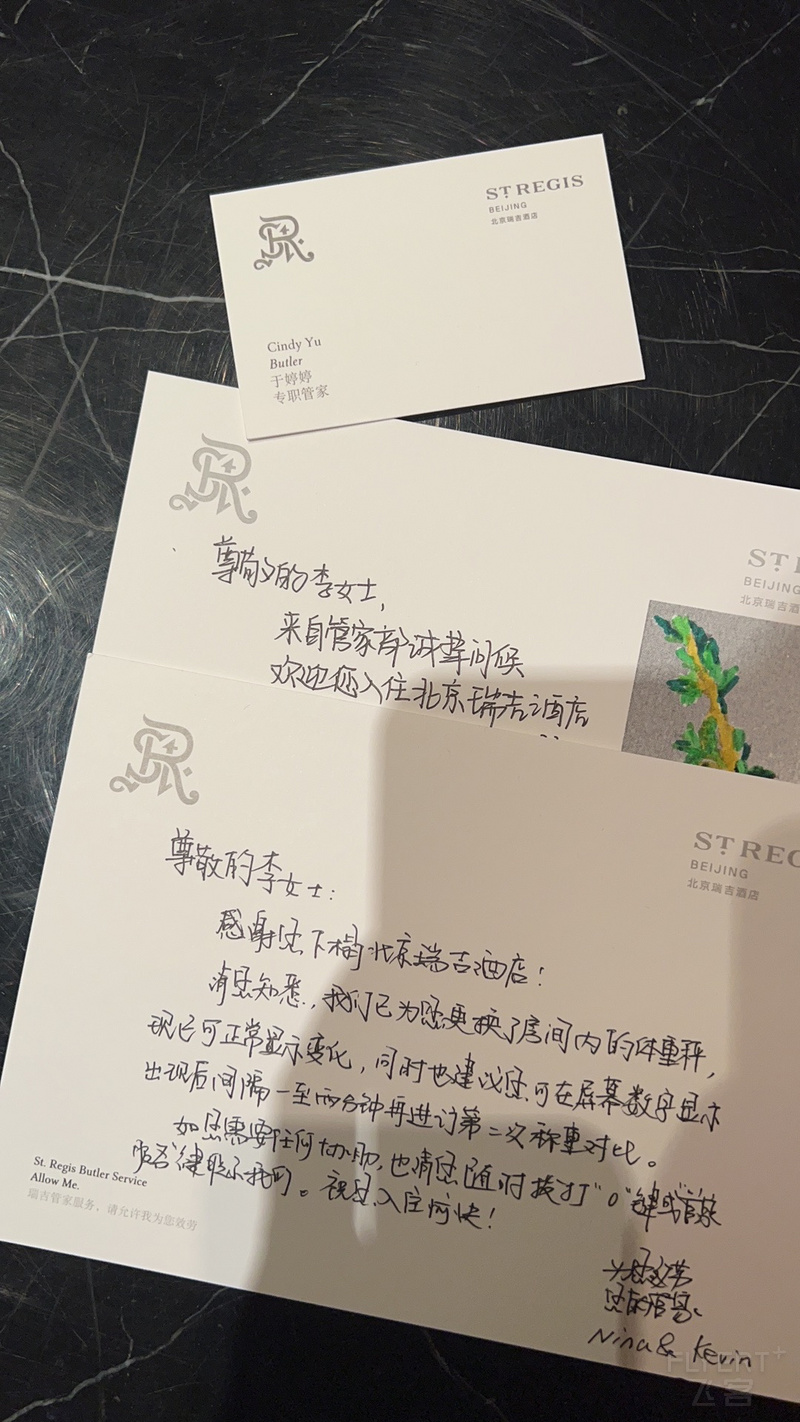 ST REGIS
BEIJING
北京瑞吉酒店
Cindy Yu
Butler
于婷婷
专职管家
ST
BEIJING
北京瑞吉酒店
尊敬的李女士,
来自管家部诚挚问候
欢迎您入住北京瑞吉酒店
ST REG
BEIJING
北京瑞吉酒店
尊敬的李女士:
感谢您下榻北京瑞吉酒店!
请您知悉,我们已为您更换了房间内的体重秤,
现已可正常显示变化,同时也建议您可在屏幕数字显示
出现后间隔一至两分钟再进行第二次称重对比。
如您需要任何协助,也请您随时拨打"0"键或"管家
服务"键联系我们。祝您入住愉快!
您的管家
Nina & Kevin
St. Regis Butler Service
Allow Me.
瑞吉管家服务,请允许我为您效劳
FLYERT+
飞客